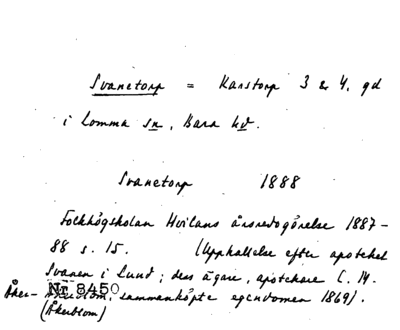 Svanetorp = Karstorp 3 & 4, gd
i Lomma sn, Bara hd.
Svanetorp 1888
Folkhögskolan Hvilans årsredogörelse 1887-
88 s. 15. (Uppkallelse efter apoteket
Svanen i Lund; dess ägare, apotekare C. M.
Åkerblom, sammanköpte egendomen 1869).
Åker- Nr 8450
(Åkerblom)